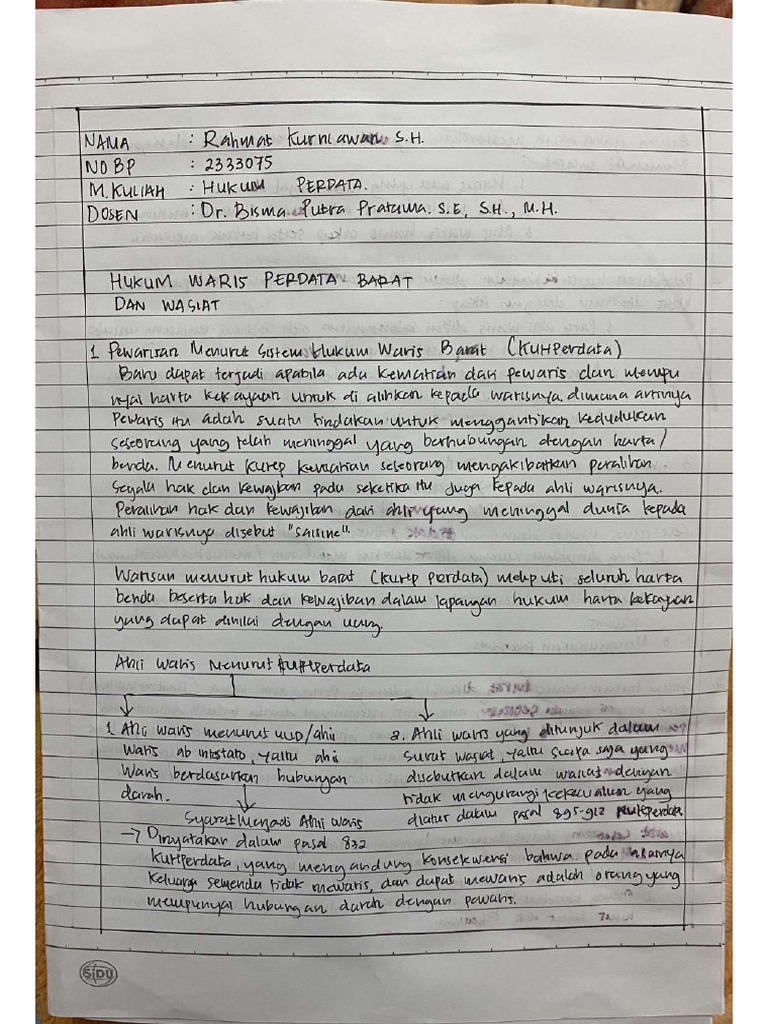 NAMA : Rahmat Kurniawan S.H.
NO BP : 2333075
M. KULIAH : HUKUM PERDATA.
DOSEN : Dr. Bisma Putra Pratama. S.E, S.H., M.H.
HUKUM WARIS PERDATA BARAT
DAN WASIAT
1 Pewarisan Menurut Sistem Hukum Waris Barat (KUHPerdata)
Baru dapat terjadi apabila ada kematian dari pewaris dan mempu
nyai harta kekayaan untuk di alihkan kepada warisnya. dimana artinya
Pewaris itu adah suatu tindakan untuk menggantikan kedudukan
seseorang yang telah meninggal yang berhubungan dengan harta/
benda. Menurut kuhp kematian seseorang mengakibatkan peralihan
Segala hak dan kewajban pada seketika itu juga kepada ahli warisnya.
Peralihan hak dan kewajiban dari ahli yang meninggal dunia kepada
ahli warisnya disebut "saisine".
Warisan menurut hukum barat (kuhp perdata) meliputi seluruh harta
benda beserta hak dan kewajiban dalam lapangan hukum harta kekayaan
yang dapat dinilai dengan uang.
Ahli waris menurut KUHPerdata
1. Ahli waris menurut UUD/ahli
waris ab intestato, yaitu ahli
waris berdasarkan hubungan
darah.
2. Ahli waris yang ditunjuk dalam
surat wasiat, yaitu siapa saja yang
disebutkan dalam wasiat dengan
tidak mengurangi kekecualian yang
diatur dalam pasal 895-912 KUHPerdata
Syarat Menjadi Ahli Waris
→ Dinyatakan dalam pasal 832
KUHPerdata, yang mengandung konsekwensi bahwa pada asasnya
keluarga semenda tidak mewaris, dan dapat mewaris adalah orang yang
mempunyai hubungan darah dengan pewaris.
SiDU